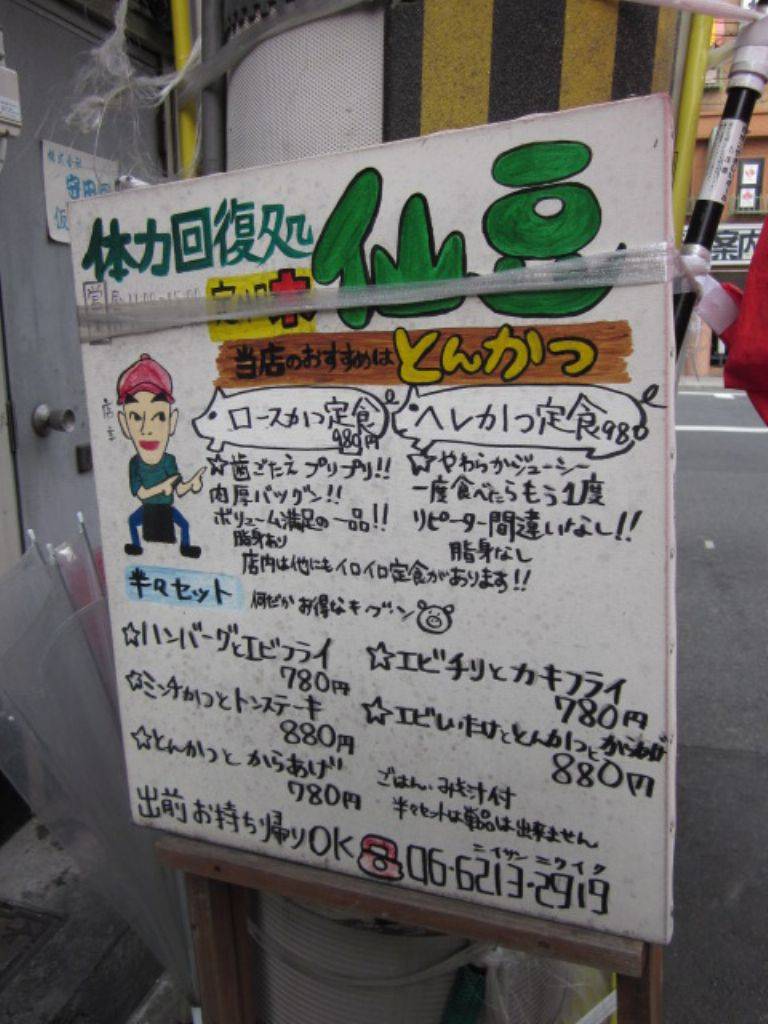 株式会社
体力回復処
仙豆
定休日 木
当店のおすすめは とんかつ
店主
ロースかつ定食
980円
ヘレかつ定食980
☆歯ごたえプリプリ!!
肉厚バツグン!!
ボリューム満足の一品!!
脂身あり
☆やわらかジューシー
一度食べたらもう1度
リピーター間違いなし!!
脂身なし
店内は他にもイロイロ定食があります!!
半々セット
何だかお得なキブン
☆ハンバーグとエビフライ
780円
☆ミンチかつとトンステーキ
880円
☆とんかつとからあげ
780円
☆エビチリとカキフライ
780円
☆エビしいたけととんかつとからあげ
880円
ごはん・みそ汁付
半々セットは単品は出来ません
出前お持ち帰りOK
ニイサン ニクイク
06-6213-2919
案内